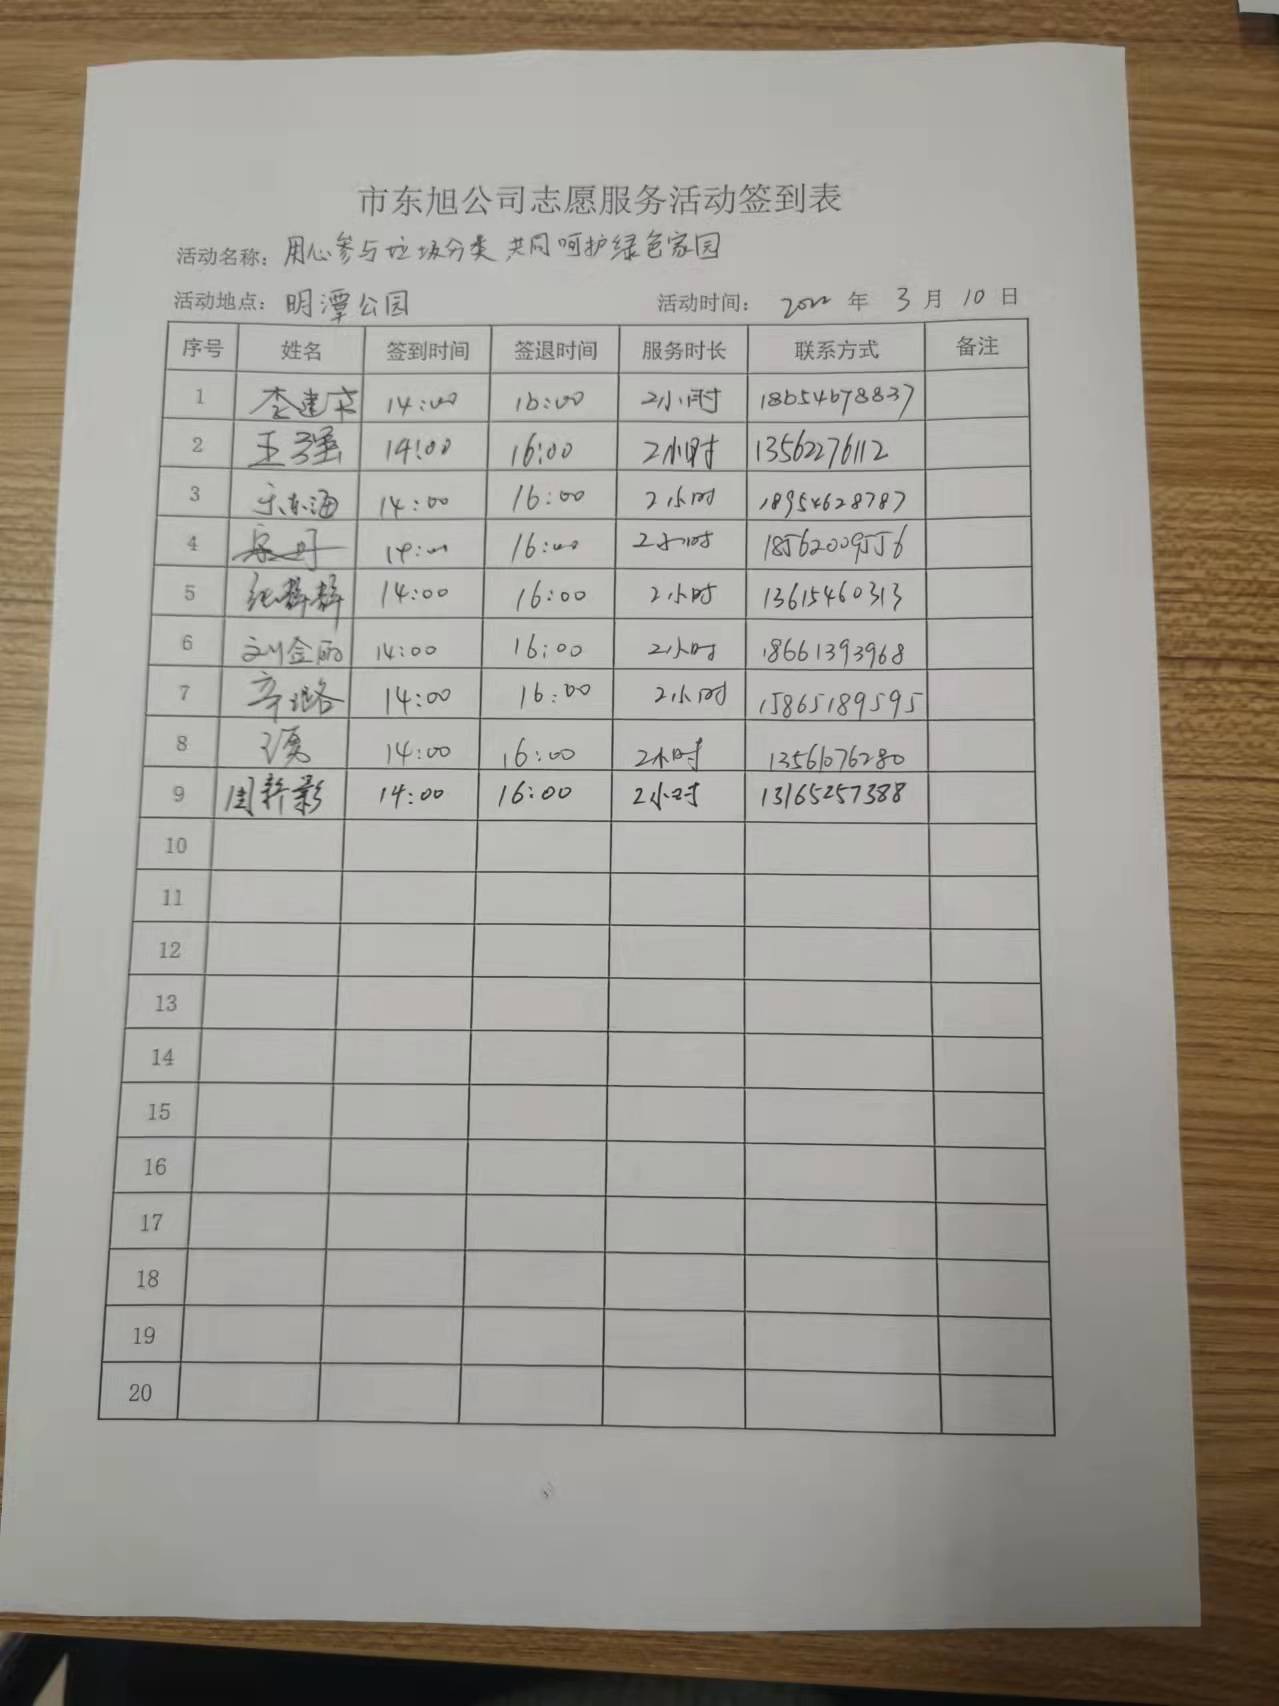 市东旭公司志愿服务活动签到表
活动名称：用心参与垃圾分类 共同呵护绿色家园
活动地点：明潭公园 活动时间：2022 年 3 月 10 日
序号 姓名 签到时间 签退时间 服务时长 联系方式 备注
1 李建 14:00 16:00 2小时 18654678837
2 王强 14:00 16:00 2小时 13562276112
3 东海 14:00 16:00 2小时 18954628787
4 14:00 16:00 2小时 18562009556
5 张群群 14:00 16:00 2小时 13615460313
6 刘金丽 14:00 16:00 2小时 18661393968
7 辛 14:00 16:00 2小时 15865189595
8 14:00 16:00 2小时 13561076280
9 周新影 14:00 16:00 2小时 13165257388
10
11
12
13
14
15
16
17
18
19
20